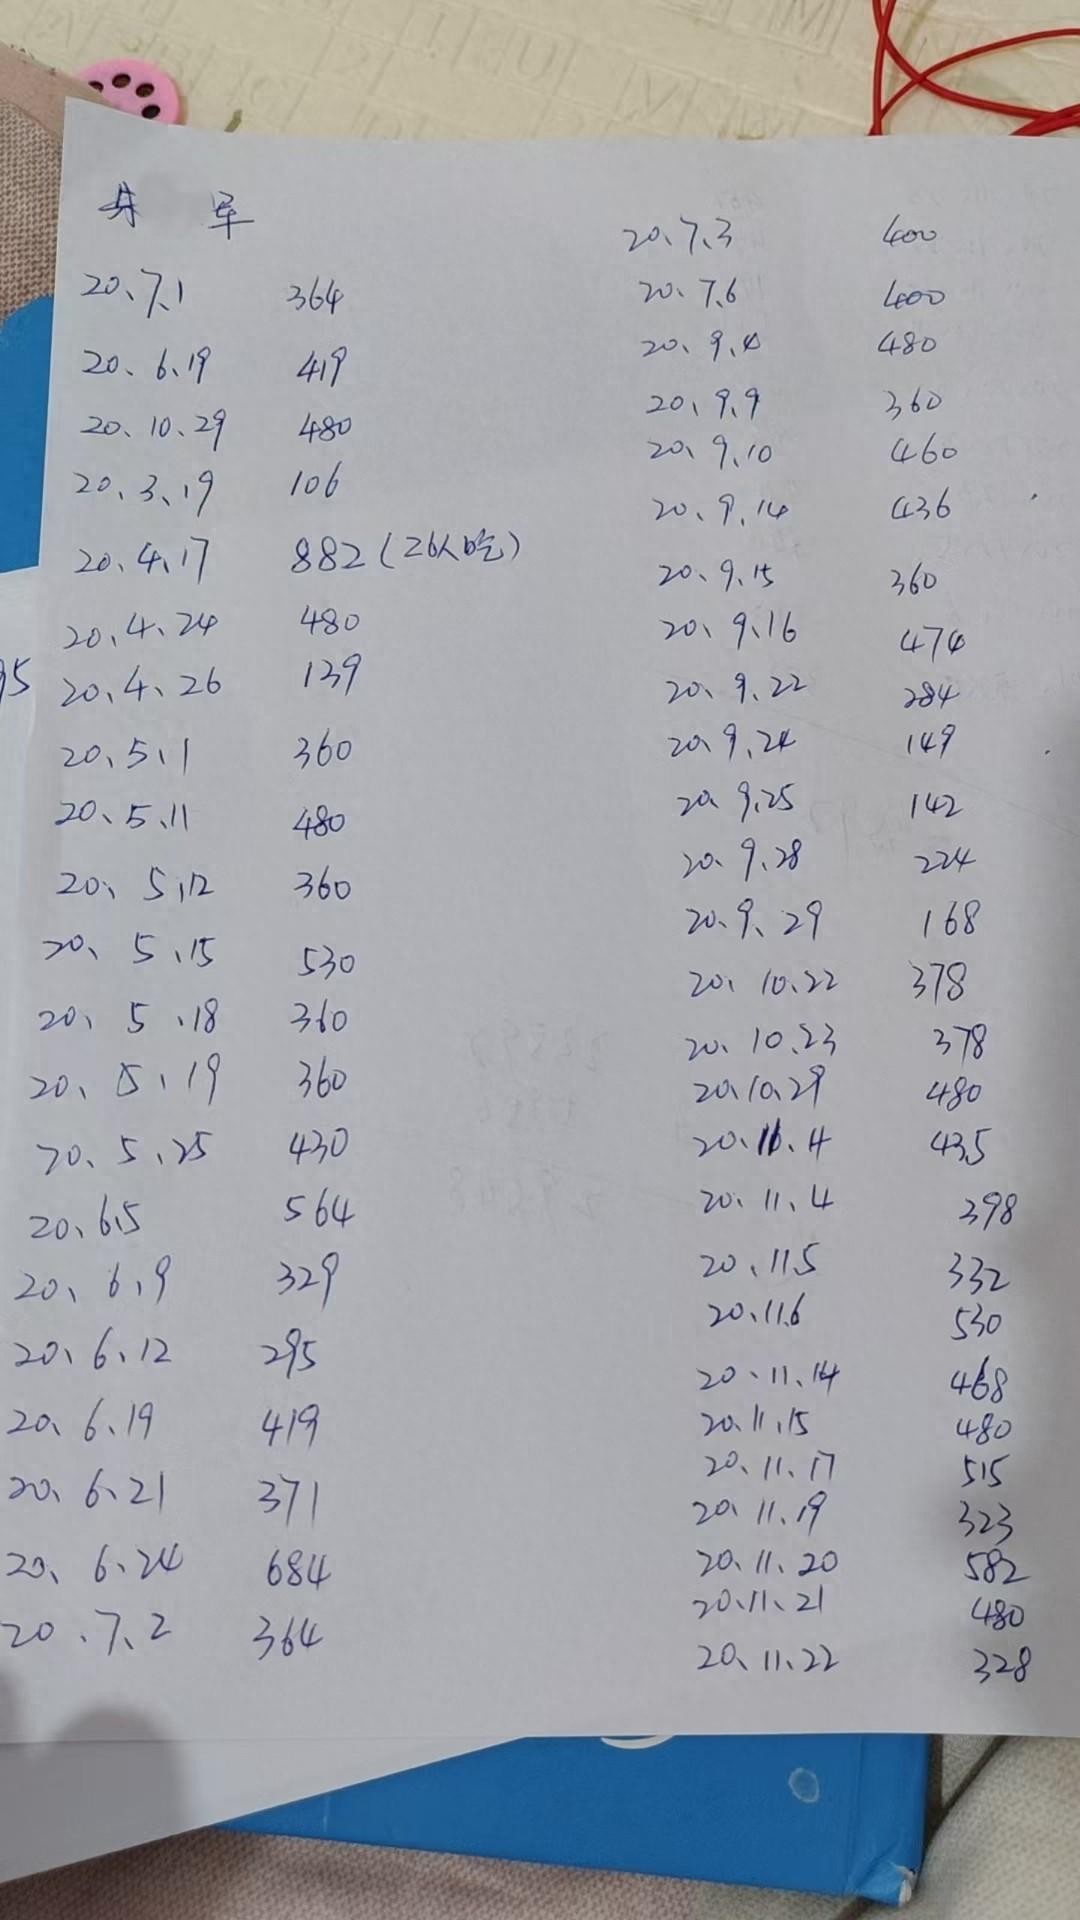 军
20、7、1 364
20、6、19 419
20、10、29 480
20、3、19 106
20、4、17 882(26人吃)
20、4、24 480
20、4、26 139
20、5、1 360
20、5、11 480
20、5、12 360
20、5、15 530
20、5、18 360
20、5、19 360
20、5、25 430
20、6、5 564
20、6、9 329
20、6、12 295
20、6、19 419
20、6、21 371
20、6、24 684
20、7、2 364
20、7、3 400
20、7、6 400
20、9、4 480
20、9、9 360
20、9、10 460
20、9、14 436
20、9、15 360
20、9、16 474
20、9、22 284
20、9、24 149
20、9、25 142
20、9、28 224
20、9、29 168
20、10、22 378
20、10、23 378
20、10、29 480
20、11、4 435
20、11、4 398
20、11、5 332
20、11、6 530
20、11、14 468
20、11、15 480
20、11、17 515
20、11、19 323
20、11、20 582
20、11、21 480
20、11、22 328